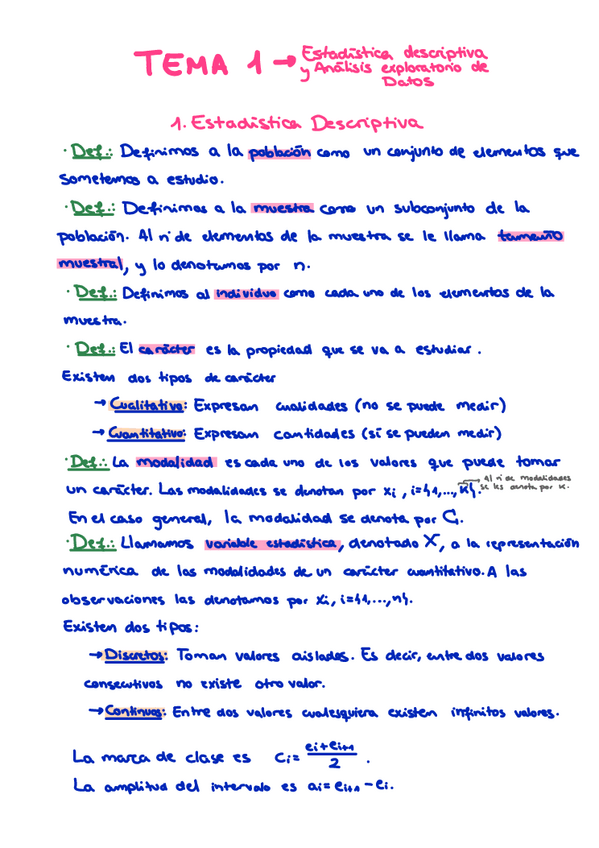 TEMA 1 → Estadística descriptiva
y Análisis exploratorio de
Datos
1. Estadística Descriptiva
· Def.: Definimos a la población como un conjunto de elementos que
sometemos a estudio.
· Def.: Definimos a la muestra como un subconjunto de la
población. Al nº de elementos de la muestra se le llama tamaño
muestral, y lo denotamos por n.
· Def.: Definimos al individuo como cada uno de los elementos de la
muestra.
· Def.: El carácter es la propiedad que se va a estudiar.
Existen dos tipos de carácter
→ Cualitativo: Expresan cualidades (no se puede medir)
→ Cuantitativo: Expresan cantidades (sí se pueden medir)
· Def.: La modalidad es cada uno de los valores que puede tomar
un carácter. Las modalidades se denotan por xi, i={1,...,K}. → Al nº de modalidades
se les denota por K.
En el caso general, la modalidad se denota por C.
· Def.: Llamamos variable estadística, denotado X, a la representación
numérica de las modalidades de un carácter cuantitativo. A las
observaciones las denotamos por xi, i={1,...,n}.
Existen dos tipos:
→ Discretos: Toman valores aislados. Es decir, entre dos valores
consecutivos no existe otro valor.
→ Continuos: Entre dos valores cualesquiera existen infinitos valores.
La marca de clase es ci = (ei+ei+1)/2 .
La amplitud del intervalo es ai = ei+1 - ei.